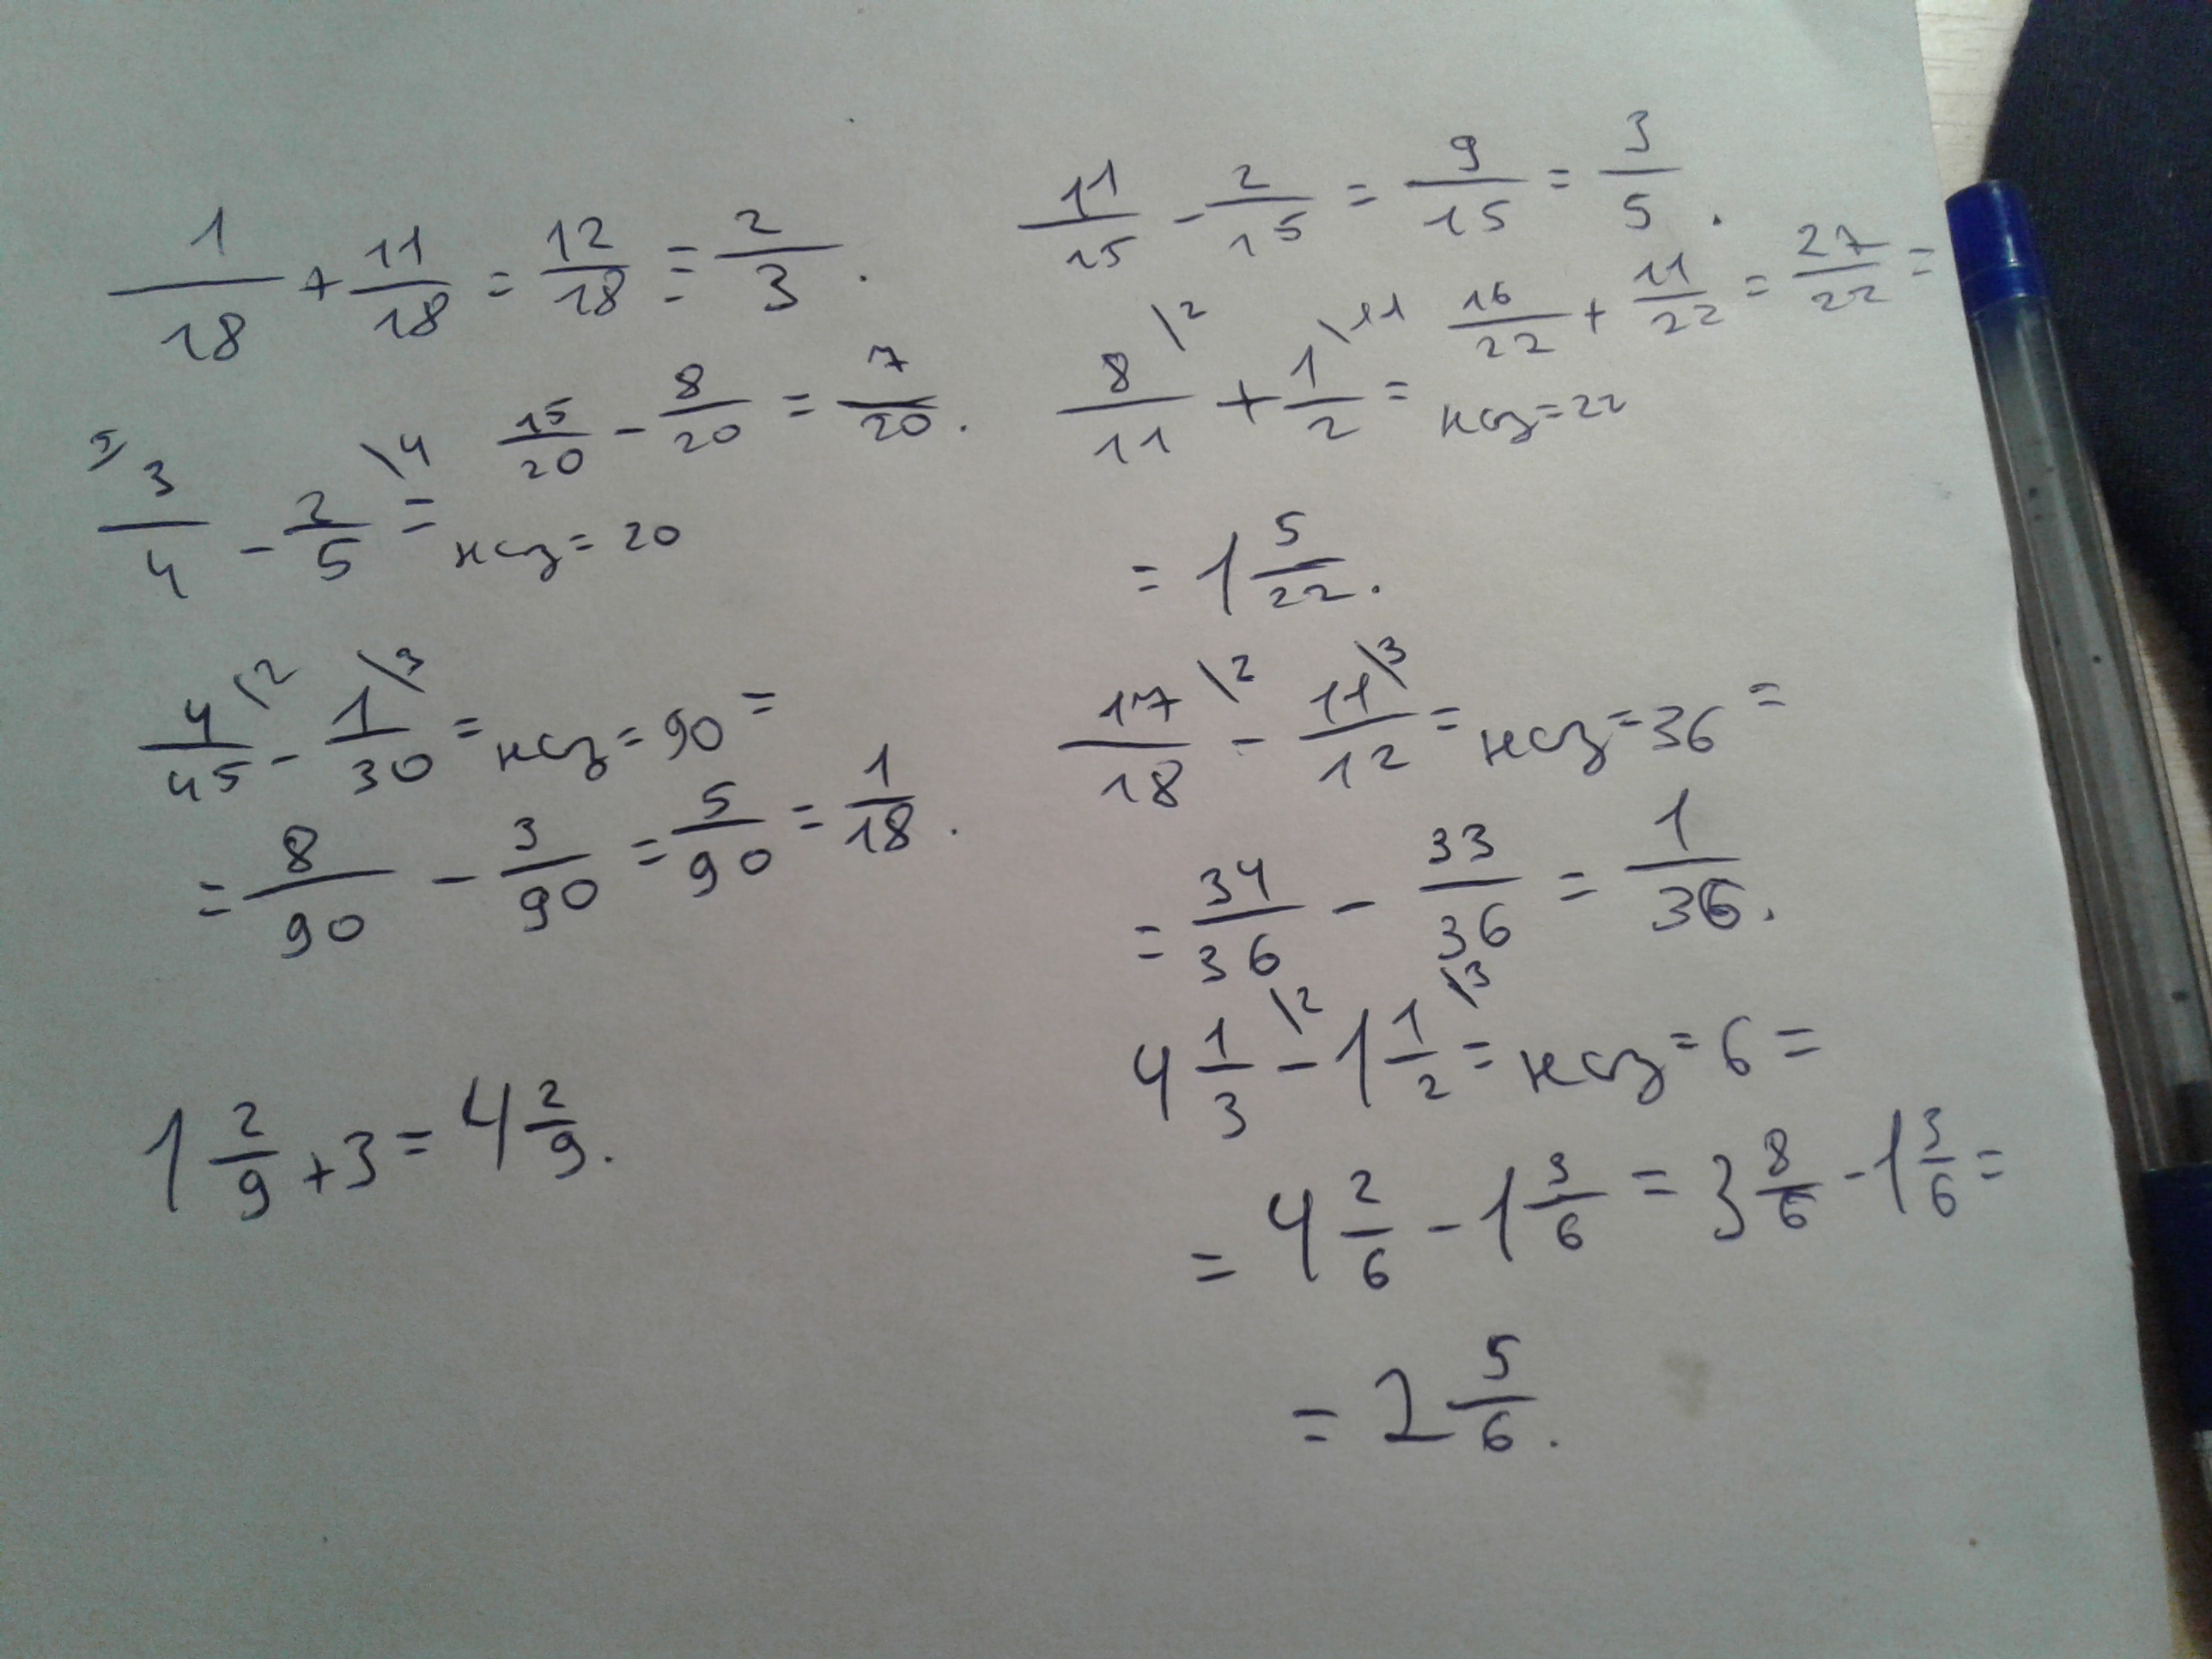 1/18 + 11/18 = 12/18 = 2/3.
5/ 3/4 - 2/5 \4 = 15/20 - 8/20 = 7/20.
нсз = 20
4/45 \2 - 1/30 \3 = нсз = 90 =
= 8/90 - 3/90 = 5/90 = 1/18.
1 2/9 + 3 = 4 2/9.
11/15 - 2/15 = 9/15 = 3/5.
8/11 \2 + 1/2 \11 = 16/22 + 11/22 = 27/22 =
нсз = 22
= 1 5/22.
17/18 \2 - 11/12 \3 = нсз = 36 =
= 34/36 - 33/36 = 1/36.
4 1/3 \2 - 1 1/2 \3 = нсз = 6 =
= 4 2/6 - 1 3/6 = 3 8/6 - 1 3/6 =
= 2 5/6.